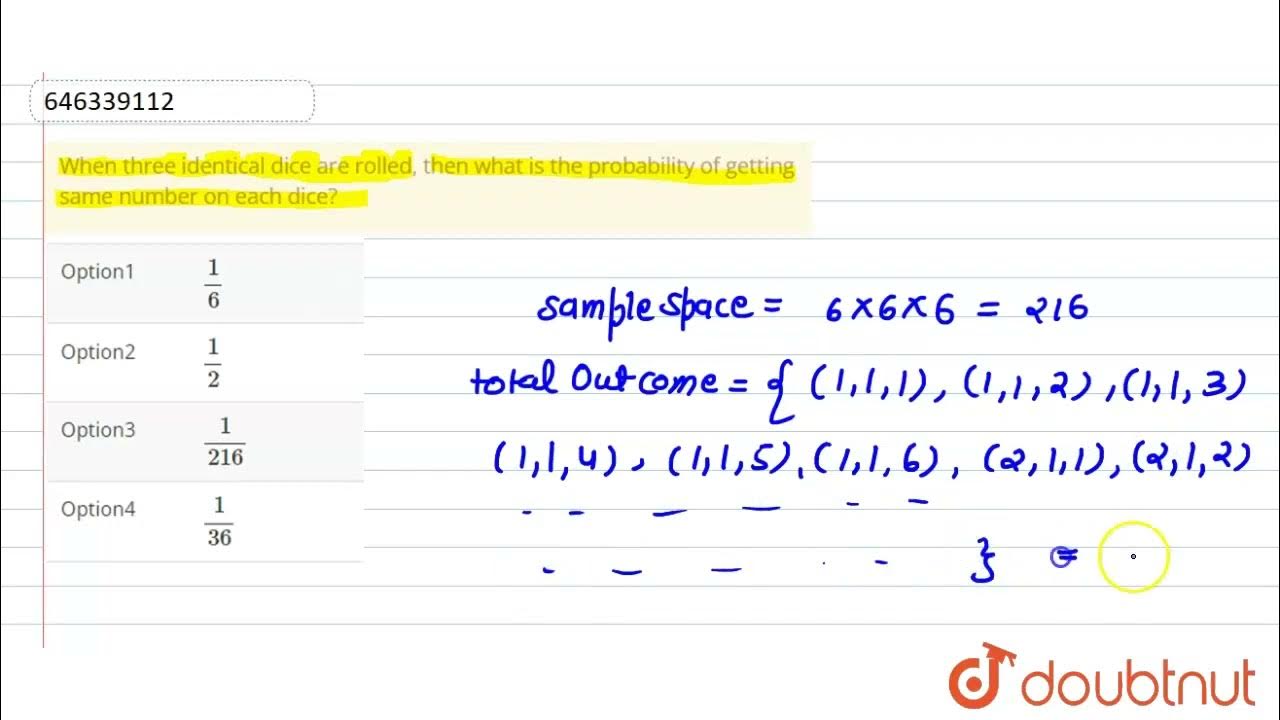 646339112
When three identical dice are rolled, then what is the probability of getting
same number on each dice?
Option1 1/6
Option2 1/2
Option3 1/216
Option4 1/36
sample space = 6×6×6 = 216
total Outcome = { (1,1,1), (1,1,2), (1,1,3)
(1,1,4), (1,1,5), (1,1,6), (2,1,1), (2,1,2)
- - - - - -
- - - . - } =
doubtnut